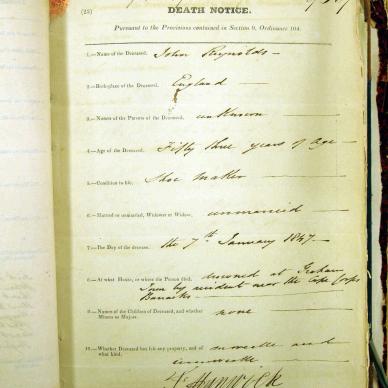 (25)
DEATH NOTICE.
Pursuant to the Provisions contained in Section 9, Ordinance 104.
1.—Name of the Deceased. John Reynolds —
2.—Birthplace of the Deceased. England —
3.—Names of the Parents of the Deceased. unknown —
4.—Age of the Deceased. Fifty three years of Age —
5.—Condition in life. Shoe Maker —
6.—Married or unmarried, Widower or Widow. unmarried —
7.—The Day of the decease. the 7th January 1847 —
8.—At what House, or where the Person died. drowned at Graham
Town by accident near the Cape Corps
Barracks —
9.—Names of the Children of Deceased, and whether none
Minors or Majors.
10.—Whether Deceased has left any property, and of moveable and
what kind.
immoveable